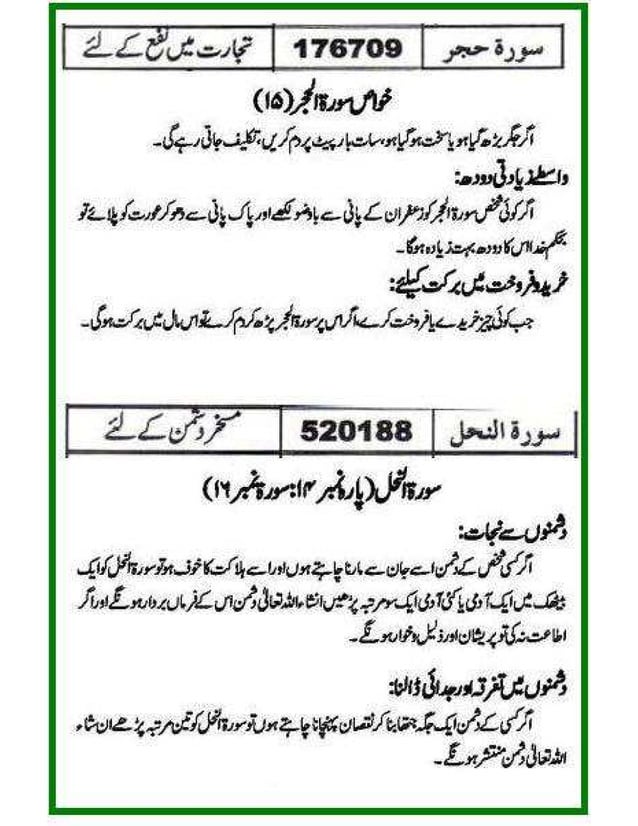 سورۃ حجر 176709 تجارت میں نفع کے لئے
خواص سورۃ الحجر (۱۵)
اگر جگر بڑھ گیا ہو یا سخت ہو گیا ہو، سات بار پیٹ پر دم کریں، تکلیف جاتی رہے گی۔
واسطے زیادتی دودھ:
اگر کوئی شخص سورۃ الحجر کو زعفران کے پانی سے باوضو لکھے اور پاک پانی سے دھو کر عورت کو پلائے تو
بحکم خدا اس کا دودھ بہت زیادہ ہوگا۔
خرید و فروخت میں برکت کیلئے:
جب کوئی چیز خریدے یا فروخت کرے، اگر اس پر سورۃ الحجر پڑھ کر دم کرے تو اس مال میں برکت ہوگی۔
سورۃ النحل 520188 مسخر دشمن کے لئے
سورۃ النحل (پارہ نمبر ۱۴: سورۃ نمبر ۱۶)
دشمنوں سے نجات:
اگر کسی شخص کے دشمن اسے جان سے مارنا چاہتے ہوں اور اسے ہلاکت کا خوف ہو تو سورۃ النحل کو ایک
بیٹھک میں ایک آدمی یا کئی آدمی ایک سو مرتبہ پڑھیں انشاء اللہ تعالیٰ دشمن اس کے فرماں بردار ہونگے اور اگر
اطاعت نہ کی تو پریشان اور ذلیل و خوار ہونگے۔
دشمنوں میں تفرقہ اور جدائی ڈالنا:
اگر کسی کے دشمن ایک جگہ جتھا بنا کر نقصان پہنچانا چاہتے ہوں تو سورۃ النحل کو تین مرتبہ پڑھے ان شاء
اللہ تعالیٰ دشمن منتشر ہونگے۔